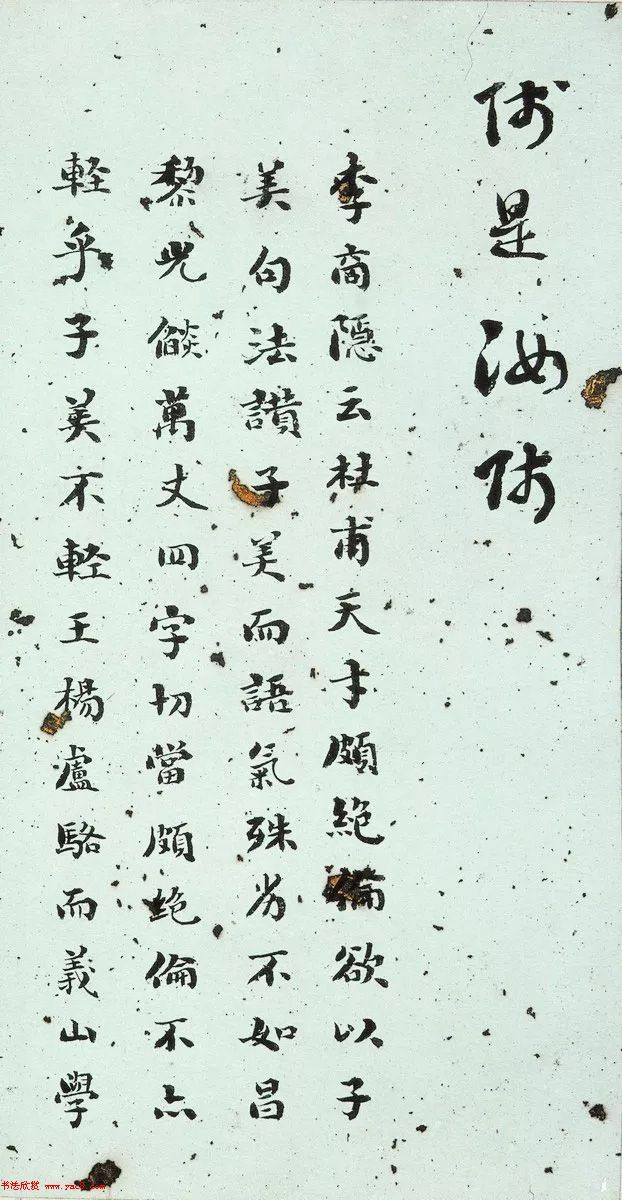 師是汝師
李商隱云杜甫天才頗絕倫欲以子
美句法讚子美而語氣殊劣不如昌
黎光燄萬丈四字切當頗絕倫不亦
輕乎子美不輕王楊盧駱而義山學
书法欣赏 www.yac8.com